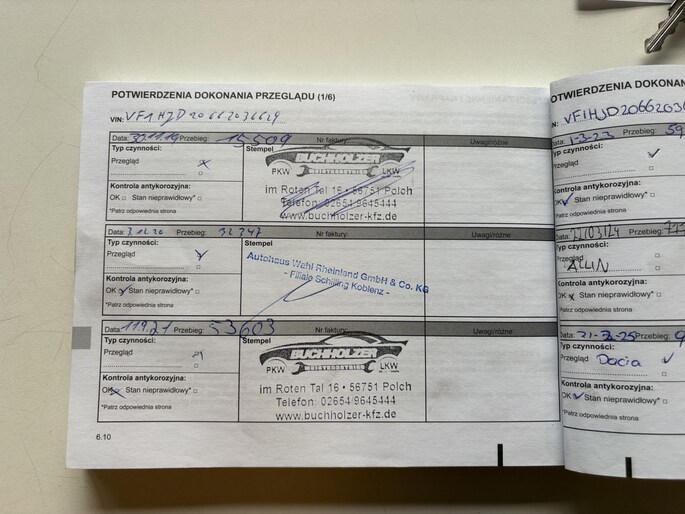 POTWIERDZENIA DOKONANIA PRZEGLĄDU (1/6)
VIN: VF1HJD20662036629
Data: Przebieg: 15509 Nr faktury:
Typ czynności: Stempel
Przegląd x
BUCHHOLZER
PKW LKW
im Roten Tal 16 • 56751 Polch
Telefon: 02654/9645444
www.buchholzer-kfz.de
Kontrola antykorozyjna:
OK Stan nieprawidłowy*
*Patrz odpowiednia strona
Data: 3.12.20 Przebieg: 32347 Nr faktury: Uwagi/różne
Typ czynności: Stempel
Przegląd
Autohaus Wahl Rheinland GmbH & Co. KG
- Filiale Schilling Koblenz -
Kontrola antykorozyjna:
OK Stan nieprawidłowy*
*Patrz odpowiednia strona
Data: Przebieg: 53603 Nr faktury: Uwagi/różne
Typ czynności: Stempel
Przegląd
BUCHHOLZER
PKW LKW
im Roten Tal 16 • 56751 Polch
Telefon: 02654/9645444
www.buchholzer-kfz.de
Kontrola antykorozyjna:
OK Stan nieprawidłowy*
*Patrz odpowiednia strona
6.10
POTWIERDZENIA DOKONAN
VF1HJD20662036
Data: 1-3-23 Przebieg: 59
Typ czynności:
Przegląd
Kontrola antykorozyjna:
OK Stan nieprawidłowy*
*Patrz odpowiednia strona
Data: Przebieg:
Typ czynności:
Przegląd
Kontrola antykorozyjna:
OK Stan nieprawidłowy*
*Patrz odpowiednia strona
Data: Przebieg: 9
Typ czynności:
Przegląd Dacia
Kontrola antykorozyjna:
OK Stan nieprawidłowy*
*Patrz odpowiednia strona